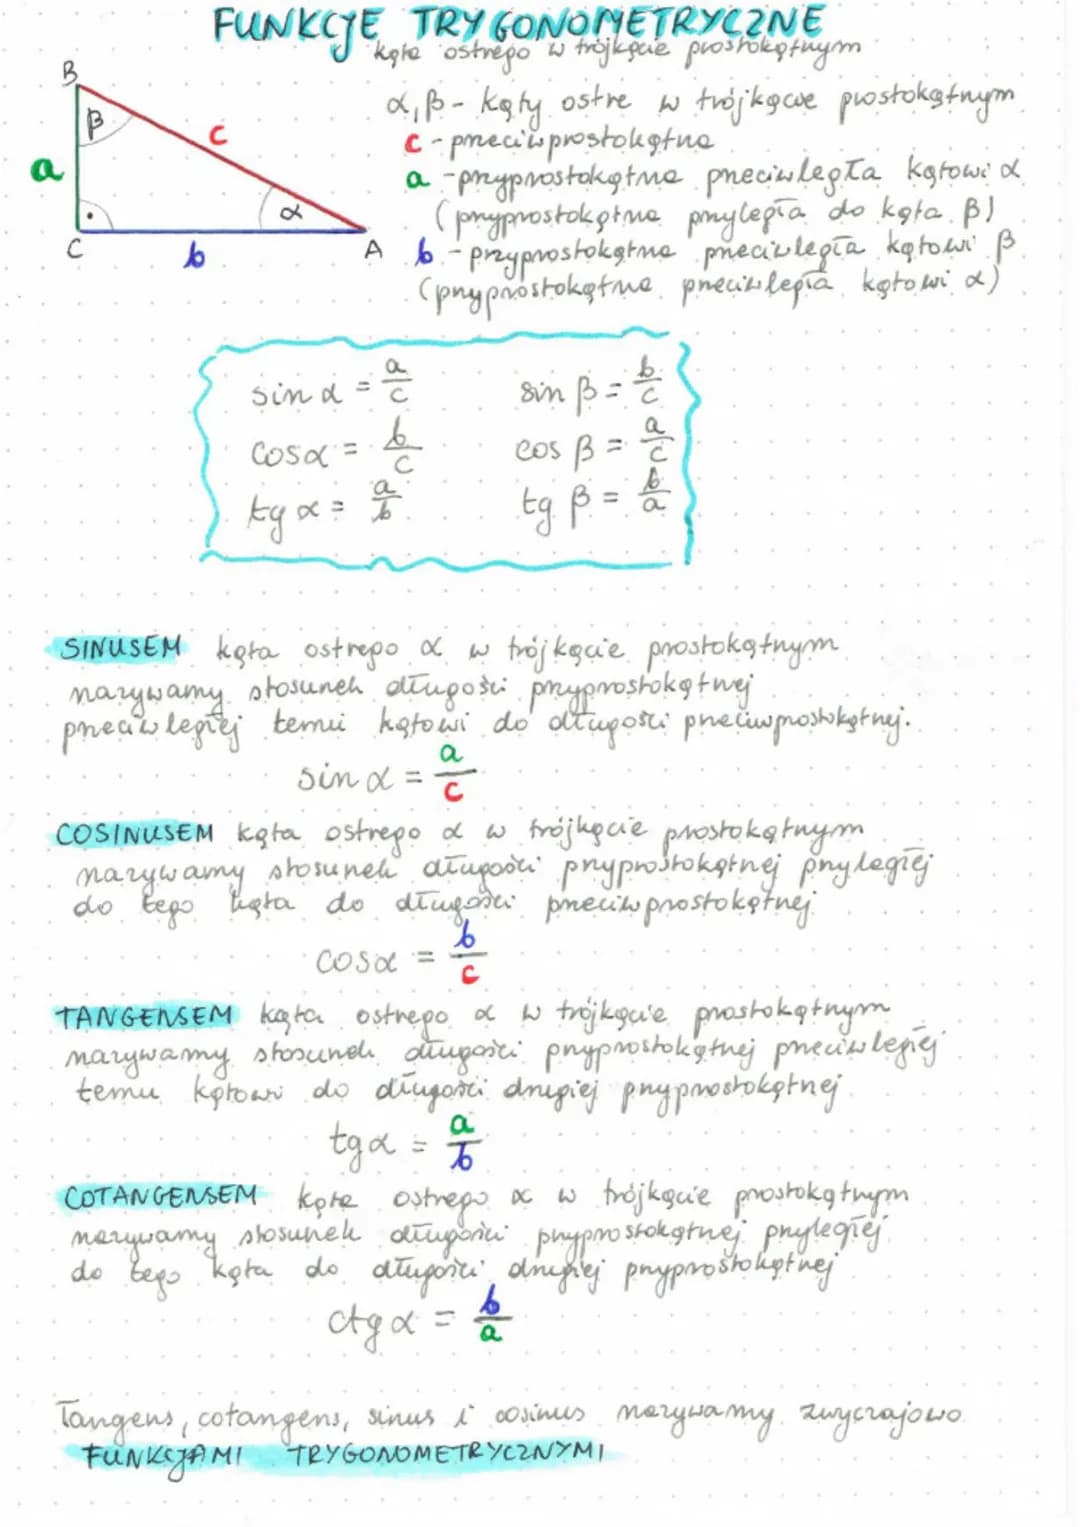 FUNKCJE TRYGONOMETRYCZNE
kąta ostrego w trójkącie prostokątnym
B
β
c
a
α
C
b
A
α, β - kąty ostre w trójkącie prostokątnym
c - przeciwprostokątna
a - przyprostokątna przeciwległa kątowi α
(przyprostokątna przyległa do kąta β)
b - przyprostokątna przeciwległa kątowi β
(przyprostokątna przeciwległa kątowi α)
sin α = a/c    sin β = b/c
cos α = b/c    cos β = a/c
tg α = a/b    tg β = b/a
SINUSEM kąta ostrego α w trójkącie prostokątnym
nazywamy stosunek długości przyprostokątnej
przeciwległej temu kątowi do długości przeciwprostokątnej.
sin α = a/c
COSINUSEM kąta ostrego α w trójkącie prostokątnym
nazywamy stosunek długości przyprostokątnej przyległej
do tego kąta do długości przeciwprostokątnej
cos α = b/c
TANGENSEM kąta ostrego α w trójkącie prostokątnym
nazywamy stosunek długości przyprostokątnej przeciwległej
temu kątowi do długości drugiej przyprostokątnej
tg α = a/b
COTANGENSEM kąta ostrego α w trójkącie prostokątnym
nazywamy stosunek długości przyprostokątnej przyległej
do tego kąta do długości drugiej przyprostokątnej
ctg α = b/a
Tangens, cotangens, sinus i cosinus nazywamy zwyczajowo
FUNKCJAMI TRYGONOMETRYCZNYMI